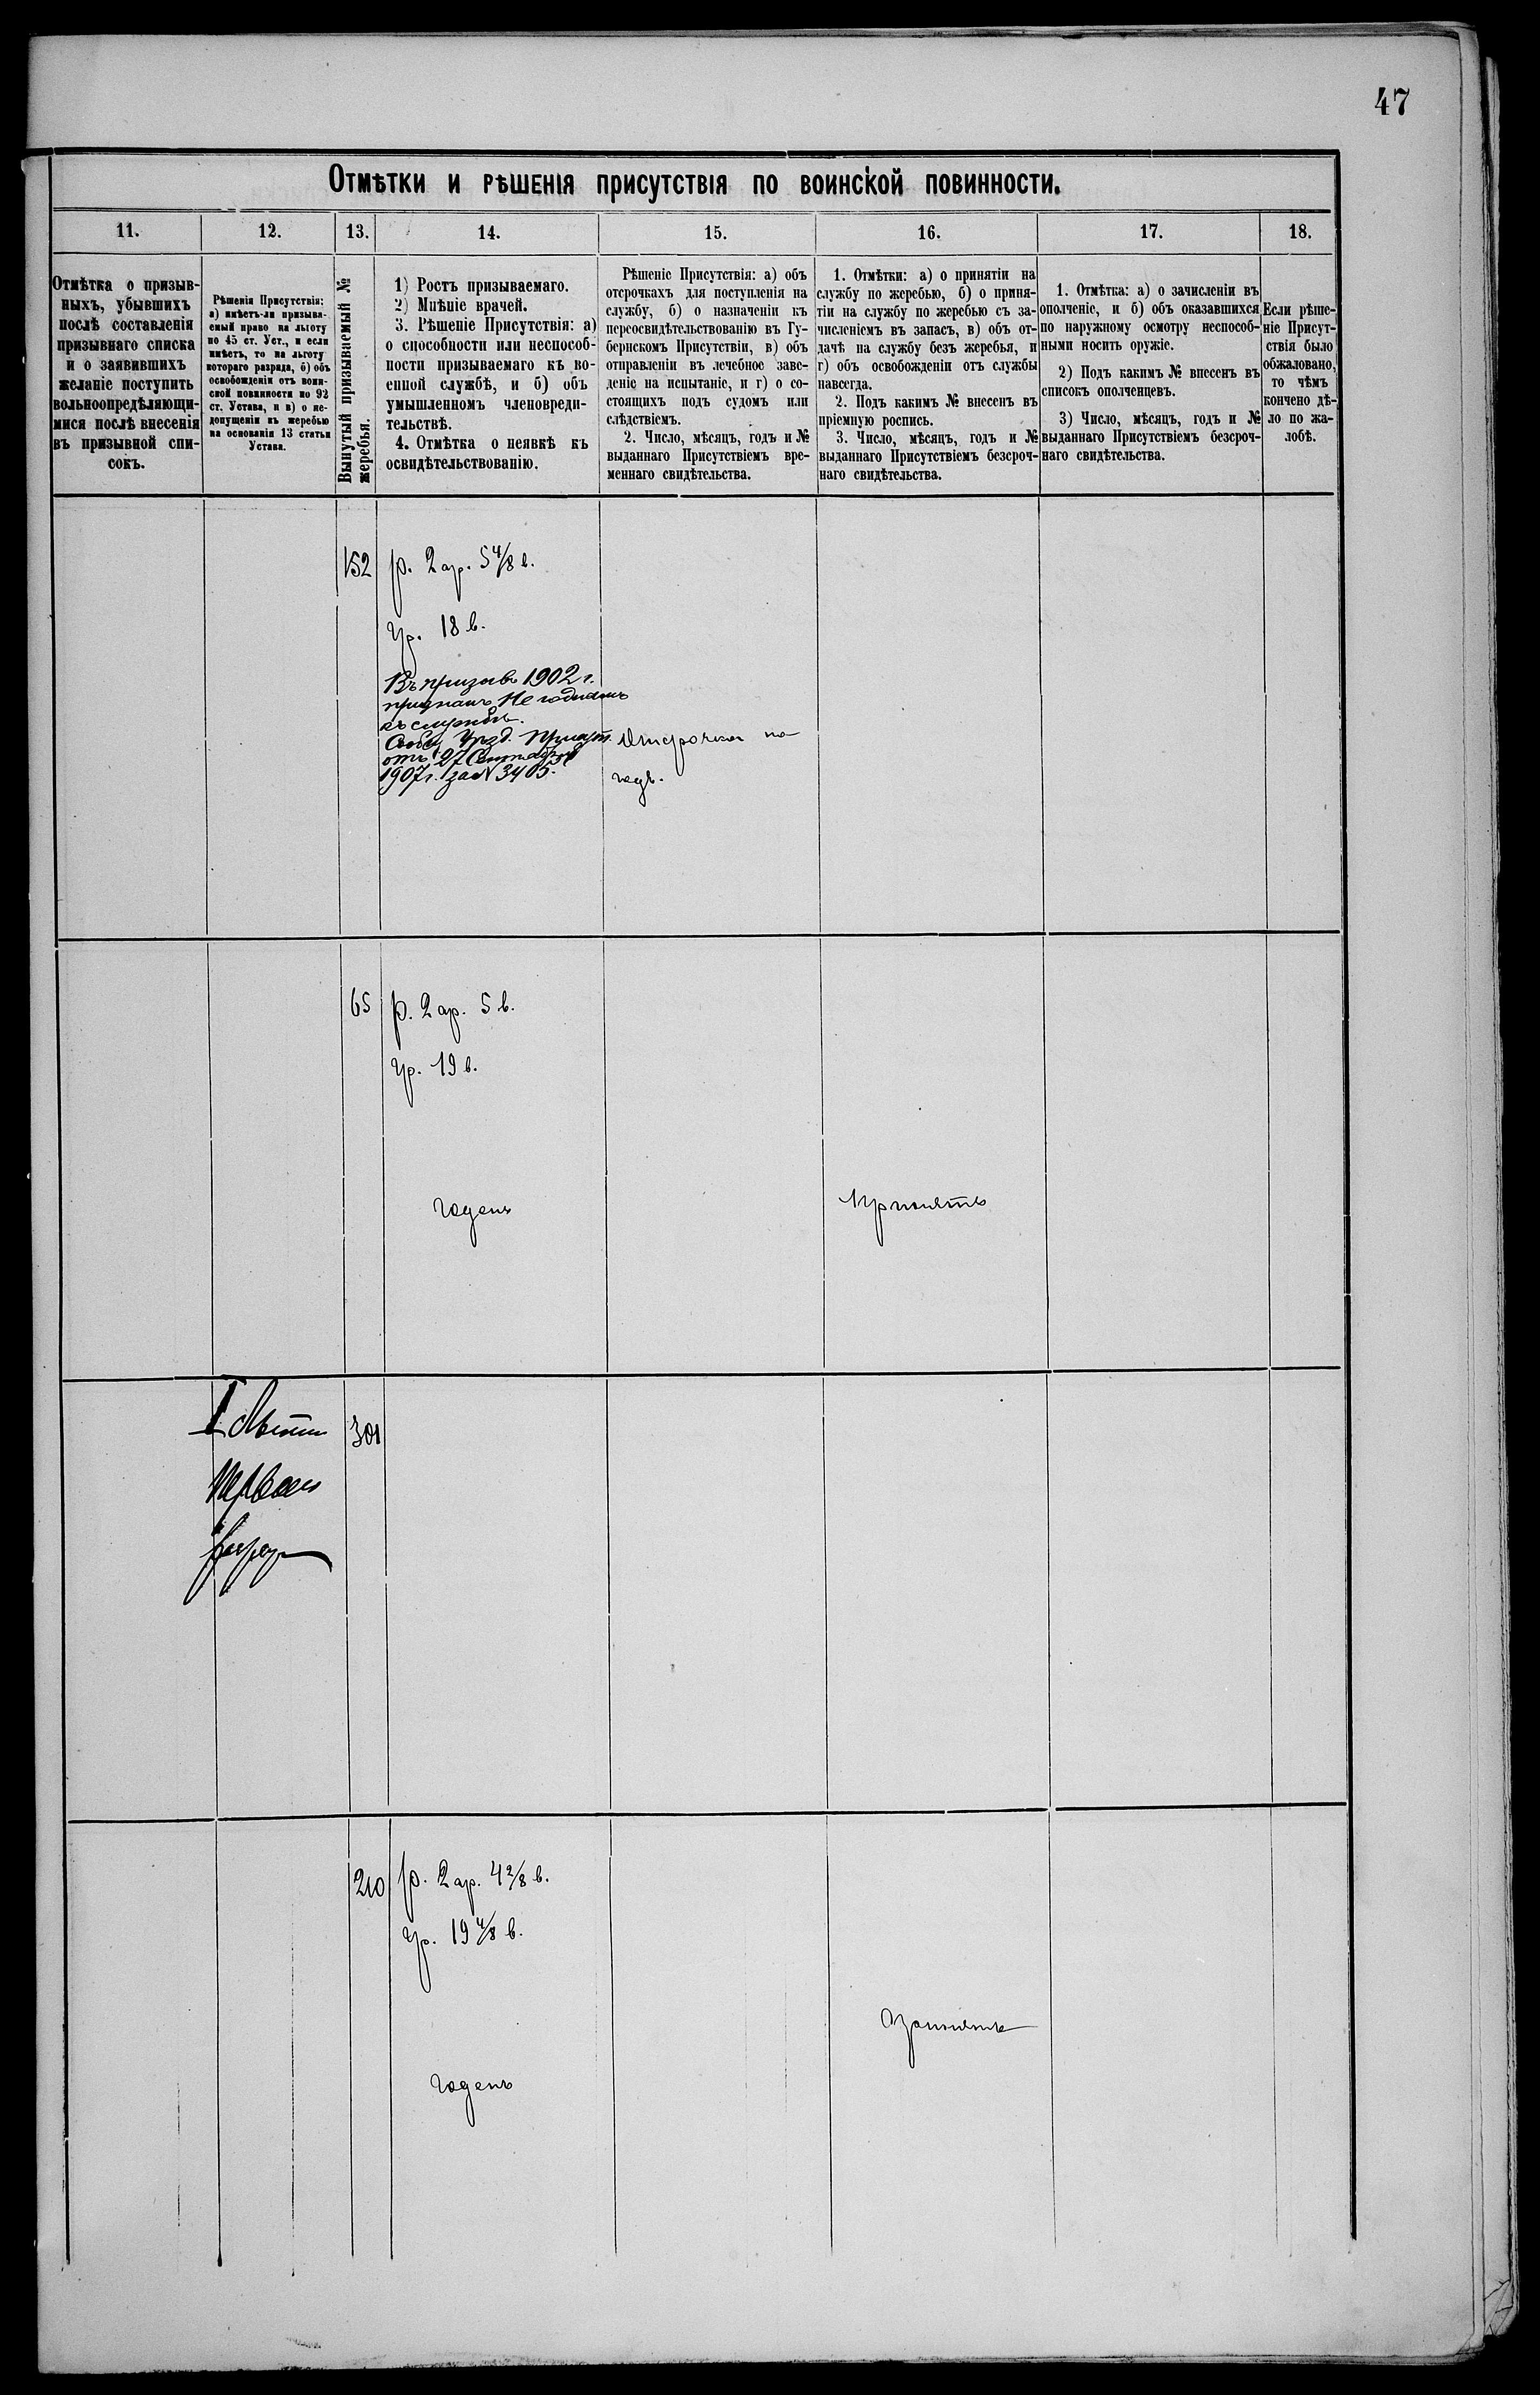 47
Отмѣтки и рѣшенія присутствія по воинской повинности.
11.
12.
13.
14.
15.
16.
17.
18.
Отмѣтка о призыв-
ныхъ, убывшихъ
послѣ составленія
призывнаго списка
и о заявившихъ
желаніе поступить
вольноопредѣляющи-
мися послѣ внесенія
въ призывной спи-
сокъ.
Рѣшенія Присутствія:
а) имѣетъ-ли призыва-
емый право на льготу
по 45 ст. Уст., и если
имѣетъ, то на льготу
котораго разряда, б) объ
освобожденіи отъ воин-
ской повинности по 92
ст. Устава, и в) о не-
допущеніи къ жеребью
на основаніи 13 статьи
Устава.
Вынутый призываемый №
жеребья.
1) Ростъ призываемаго.
2) Мнѣніе врачей.
3. Рѣшеніе Присутствія: а)
о способности или неспособ-
ности призываемаго къ во-
енной службѣ, и б) объ
умышленномъ членовреди-
тельствѣ.
4. Отмѣтка о неявкѣ къ
освидѣтельствованію.
Рѣшеніе Присутствія: а) объ
отсрочкахъ для поступленія на
службу, б) о назначеніи къ
переосвидѣтельствованію въ Гу-
бернскомъ Присутствіи, в) объ
отправленіи въ лечебное заве-
деніе на испытаніе, и г) о со-
стоящихъ подъ судомъ или
слѣдствіемъ.
2. Число, мѣсяцъ, годъ и №
выданнаго Присутствіемъ вре-
меннаго свидѣтельства.
1. Отмѣтки: а) о принятіи на
службу по жеребью, б) о приня-
тіи на службу по жеребью съ за-
численіемъ въ запасъ, в) объ от-
дачѣ на службу безъ жеребья, и
г) объ освобожденіи отъ службы
навсегда.
2. Подъ какимъ № внесенъ въ
пріемную роспись.
3. Число, мѣсяцъ, годъ и №
выданнаго Присутствіемъ безсроч-
наго свидѣтельства.
1. Отмѣтка: а) о зачисленіи въ
ополченіе, и б) объ оказавшихся
по наружному осмотру неспособ-
ными носить оружіе.
2) Подъ какимъ № внесенъ въ
списокъ ополченцевъ.
3) Число, мѣсяцъ, годъ и №
выданнаго Присутствіемъ безсроч-
наго свидѣтельства.
Если рѣше-
ніе Присут-
ствія было
обжаловано,
то чѣмъ
кончено дѣ-
ло по жа-
лобѣ.
152
р. 2 ар. 5 4/8 в.
гр. 18 в.
Въ призывъ 1902 г.
признанъ Не годнымъ
къ службѣ.
Сообщ. Уѣзд. Присут.
отъ 27 Сентября
1907 г. за № 3405.
Отсрочка на
годъ.
65
р. 2 ар. 5 в.
гр. 19 в.
Годенъ
Принятъ
I Льготы
перваго
разряда
301
210
р. 2 ар. 4 2/8 в.
гр. 19 4/8 в.
Годенъ
Принятъ